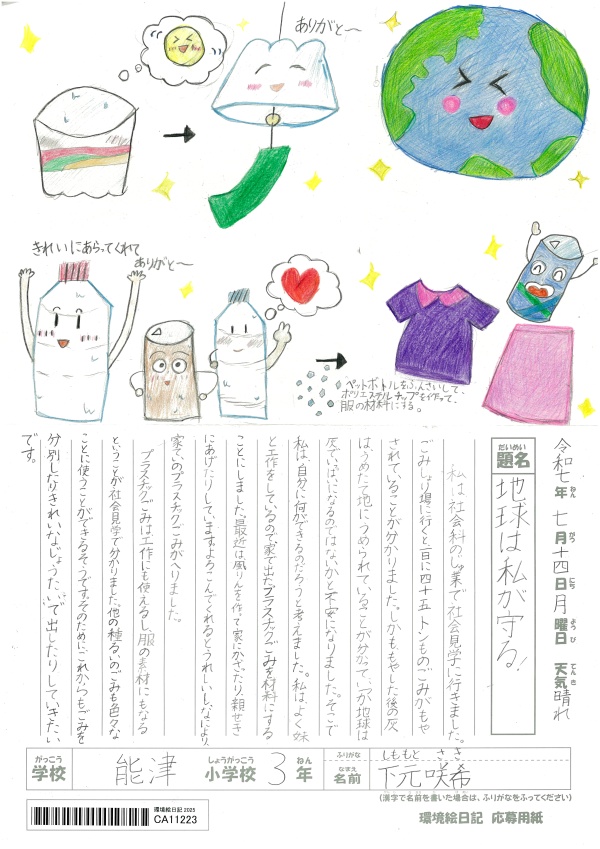 ありがと～
きれいにあらってくれて
ありがと～
ペットボトルをふんさいして、
ポリエステルチップを作って、
服の材料にする。
令和七年ねん 七月がつ十四日にち 月曜日ようび 天気てんき晴れ
だいめい
題名
地球は私が守る!
私は社会科のじゅ業で社会見学に行きました。
ごみしょり場に行くと一日に四十五トンものごみがもや
されていることが分かりました。しかももやした後の灰
はうめたて地にうめられていることが分かって、いつか地球は
灰でいっぱいになるのではないかと不安になりました。そこで
私は、自分に何ができるのだろうと考えました。私は、よく妹
と工作をしているので家で出たプラスチックごみを材料にする
ことにしました。最近は風りんを作って家にかざったり、親せき
にあげたりしています。よろこんでくれるとうれしいし、なにより
家でのプラスチックごみがへりました。
プラスチックごみは工作にも使えるし、服の素材にもなる
ということが社会見学で分かりました。他の種るいのごみも色々な
ことに使うことができるそうです。そのためにこれからもごみを
分別したりきれいなじょうたいで出したりしていきたい
です。
がっこう
学校
能津
しょうがっこう
小学校
3
ねん
年
ふりがな
しももと ささき
なまえ
名前
下元咲希
(漢字で名前を書いた場合は、ふりがなをふってください)
環境絵日記 2025
CA11223
環境絵日記 応募用紙